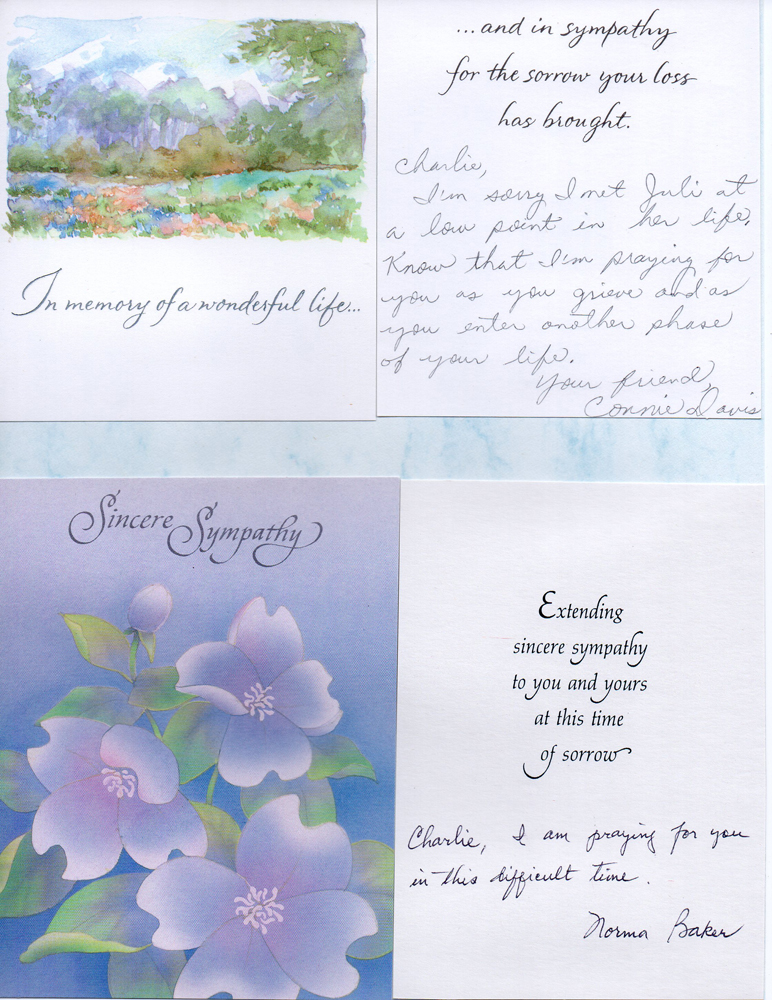 In memory of a wonderful life...
...and in sympathy
for the sorrow your loss
has brought.
Charlie,
I'm sorry I met Juli at
a low point in her life.
Know that I'm praying for
you as you grieve and as
you enter another phase
of your life.
Your friend,
Connie Davis
Sincere Sympathy
Extending
sincere sympathy
to you and yours
at this time
of sorrow
Charlie, I am praying for you
in this difficult time.
Norma Baker